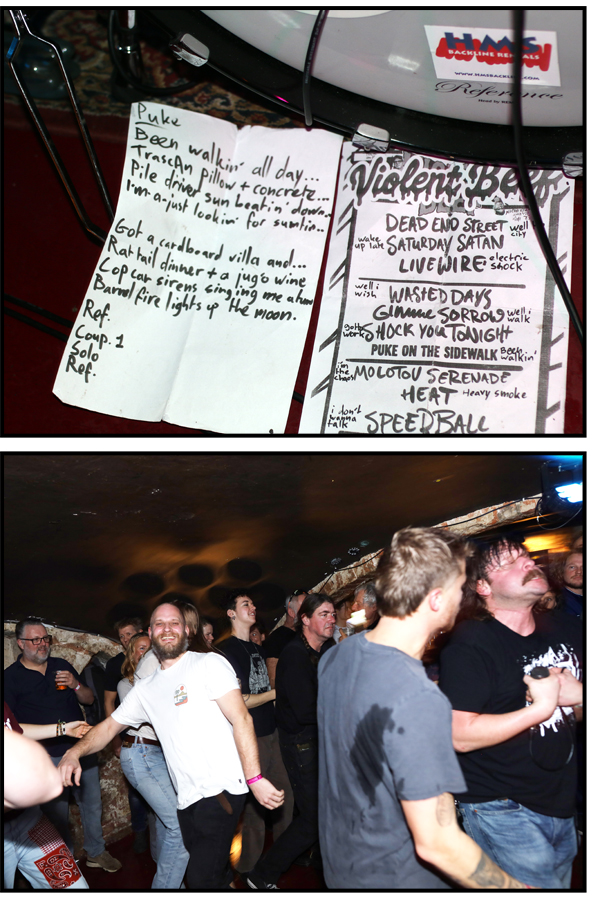 HMS
BACKLINE RENTALS
Reference
Puke
Been walkin' all day...
Trascan pillow + concrete...
Pile driver sun beatin' down..
I'm a-just lookin' for sumtin..
Got a cardboard villa and...
Rat tail dinner + a jug o wine
Cop car sirens singing me a
Barrel fire lights up the moon.
Ref.
Coup. 1
Solo
Ref.
Violent Beef
DEAD END STREET well city
wake up late SATURDAY SATAN
LIVEWIRE electric shock
well i wish WASTED DAYS
Gimme SORROW well i walk
gotta work SHOCK YOU TONIGHT
PUKE ON THE SIDEWALK Been walkin'
i'm the MOLOTOV SERENADE
HEAT Heavy smoke
i don't wanna talk SPEEDBALL